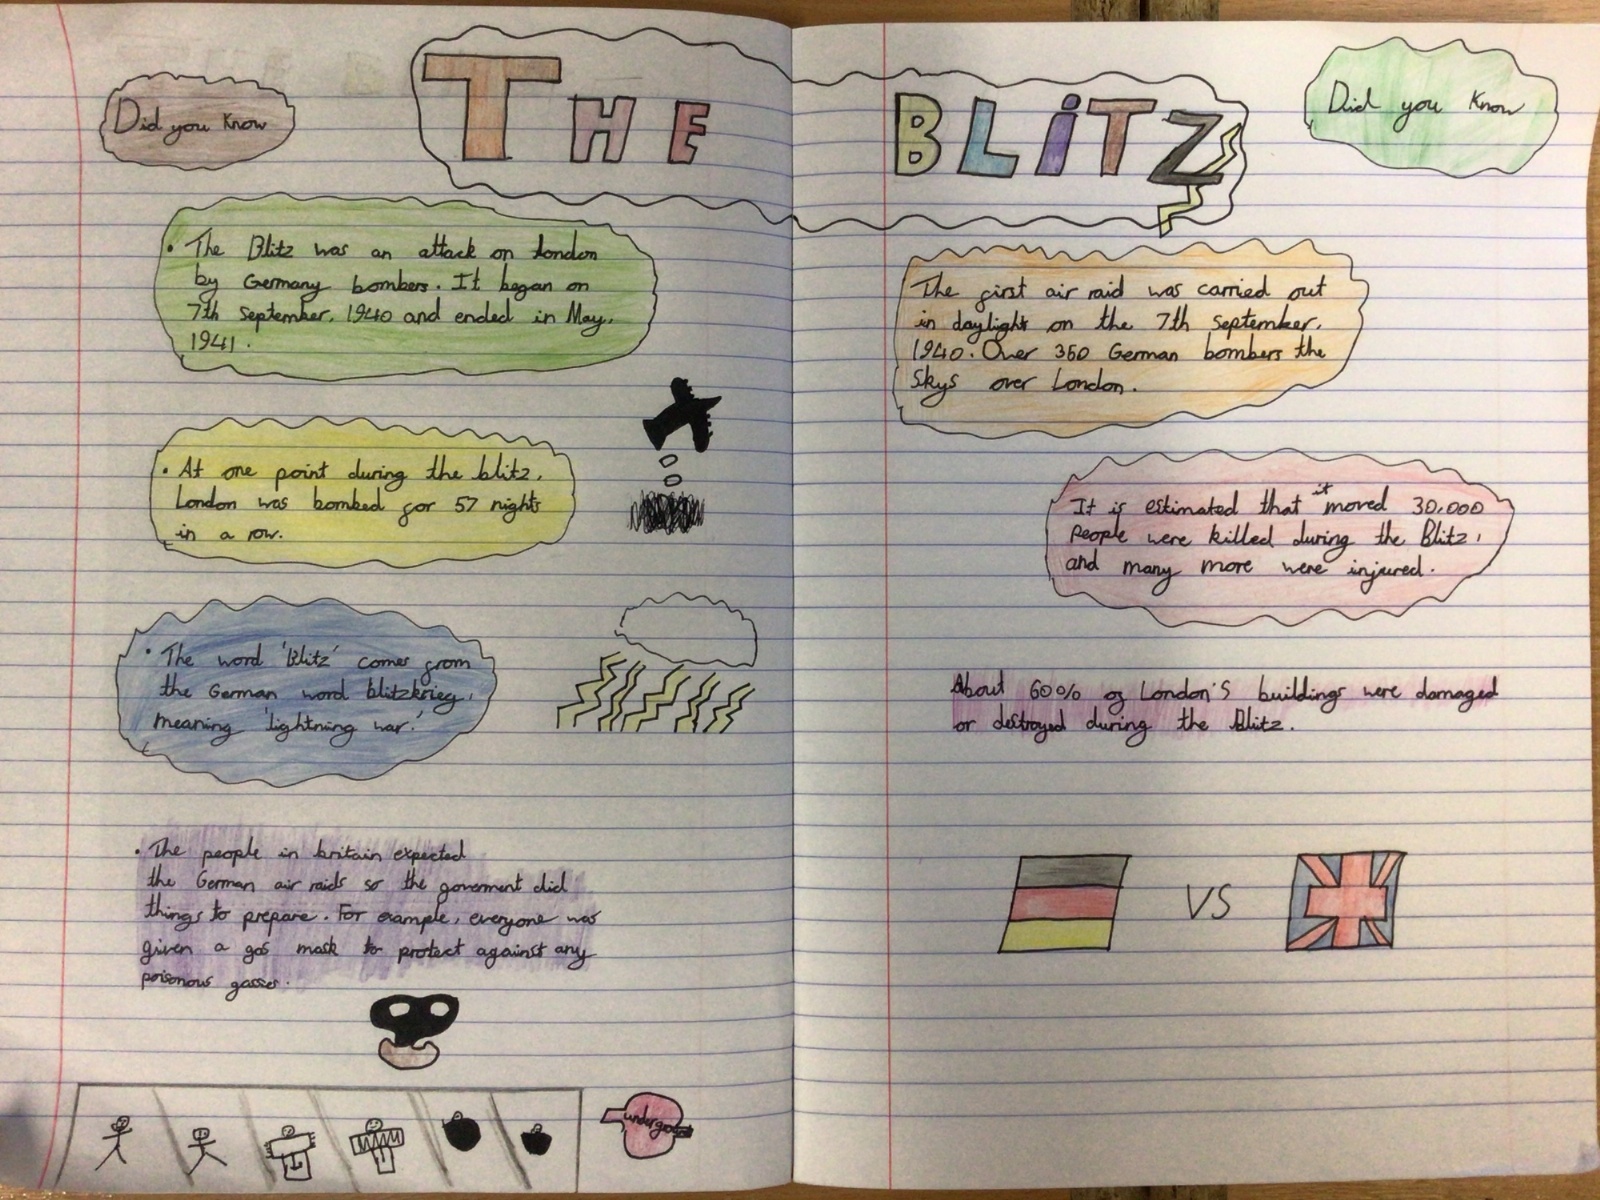 Did you Know
THE BLiTZ
Did you Know
• The Blitz was an attack on London
by Germany bombers. It began on
7th September, 1940 and ended in May,
1941.
• At one point during the blitz,
London was bombed for 57 nights
in a row.
• The word 'Blitz' comes from
the German word blitzkrieg,
meaning 'lightning war.'
• The people in britain expected
the German air raids so the goverment did
things to prepare. For example, everyone was
given a gas mask to protect against any
poisonous gasses.
underground
The first air raid was carried out
in daylight on the 7th September,
1940. Over 350 German bombers the
Skys over London.
It is estimated that it moved 30,000
People were killed during the Blitz,
and many more were injured.
About 60% of London'S buildings were damaged
or destroyed during the Blitz.
VS